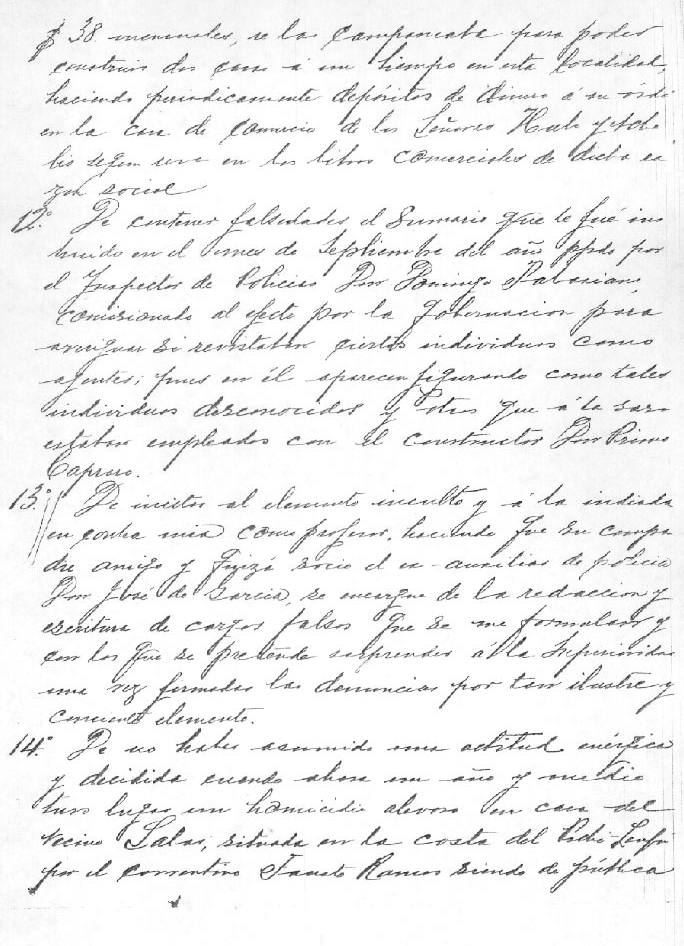 $ 38 mensuales, se las campaneaba para poder
construir dos casas á un tiempo en esta localidad,
haciendo periodicamente depósitos de dinero á su órde
en la casa de comercio de los Señores Hube y Ache
lis segun será en los libros comerciales de dicha ra
zon social
12º. De contener falsedades el Sumario que le fué ins
truido en el mes de Septiembre del año ppdo por
el Inspector de Policia Don Domingo
comisionado al efecto por la Gobernacion para
averiguar si revistaban ciertos individuos como
agentes; pues en él aparecen figurando como tales
individuos desconocidos y otros que á la sazo
estaban empleados con el constructor Don Primo
Capraro.
13º. De incitar al elemento inculto y á la indiada
en contra mia como profesor, haciendo que su compa
dre amigo y quizá socio el ex-auxiliar de policia
Don José de Garcia, se encargue de la redaccion y
escritura de cargos falsos que se me formulan y
con los que se pretende sorprender á la Superioridad
una vez firmadas las denuncias por tan ilustre y
elemento.
14º. De no haber asumido una actitud enérgica
y decidida cuando ahora un año y medio
tuvo lugar un homicidio alevoso en casa del
vecino Salas, situada en la costa del
por el correntino Fausto Ramos siendo de pública